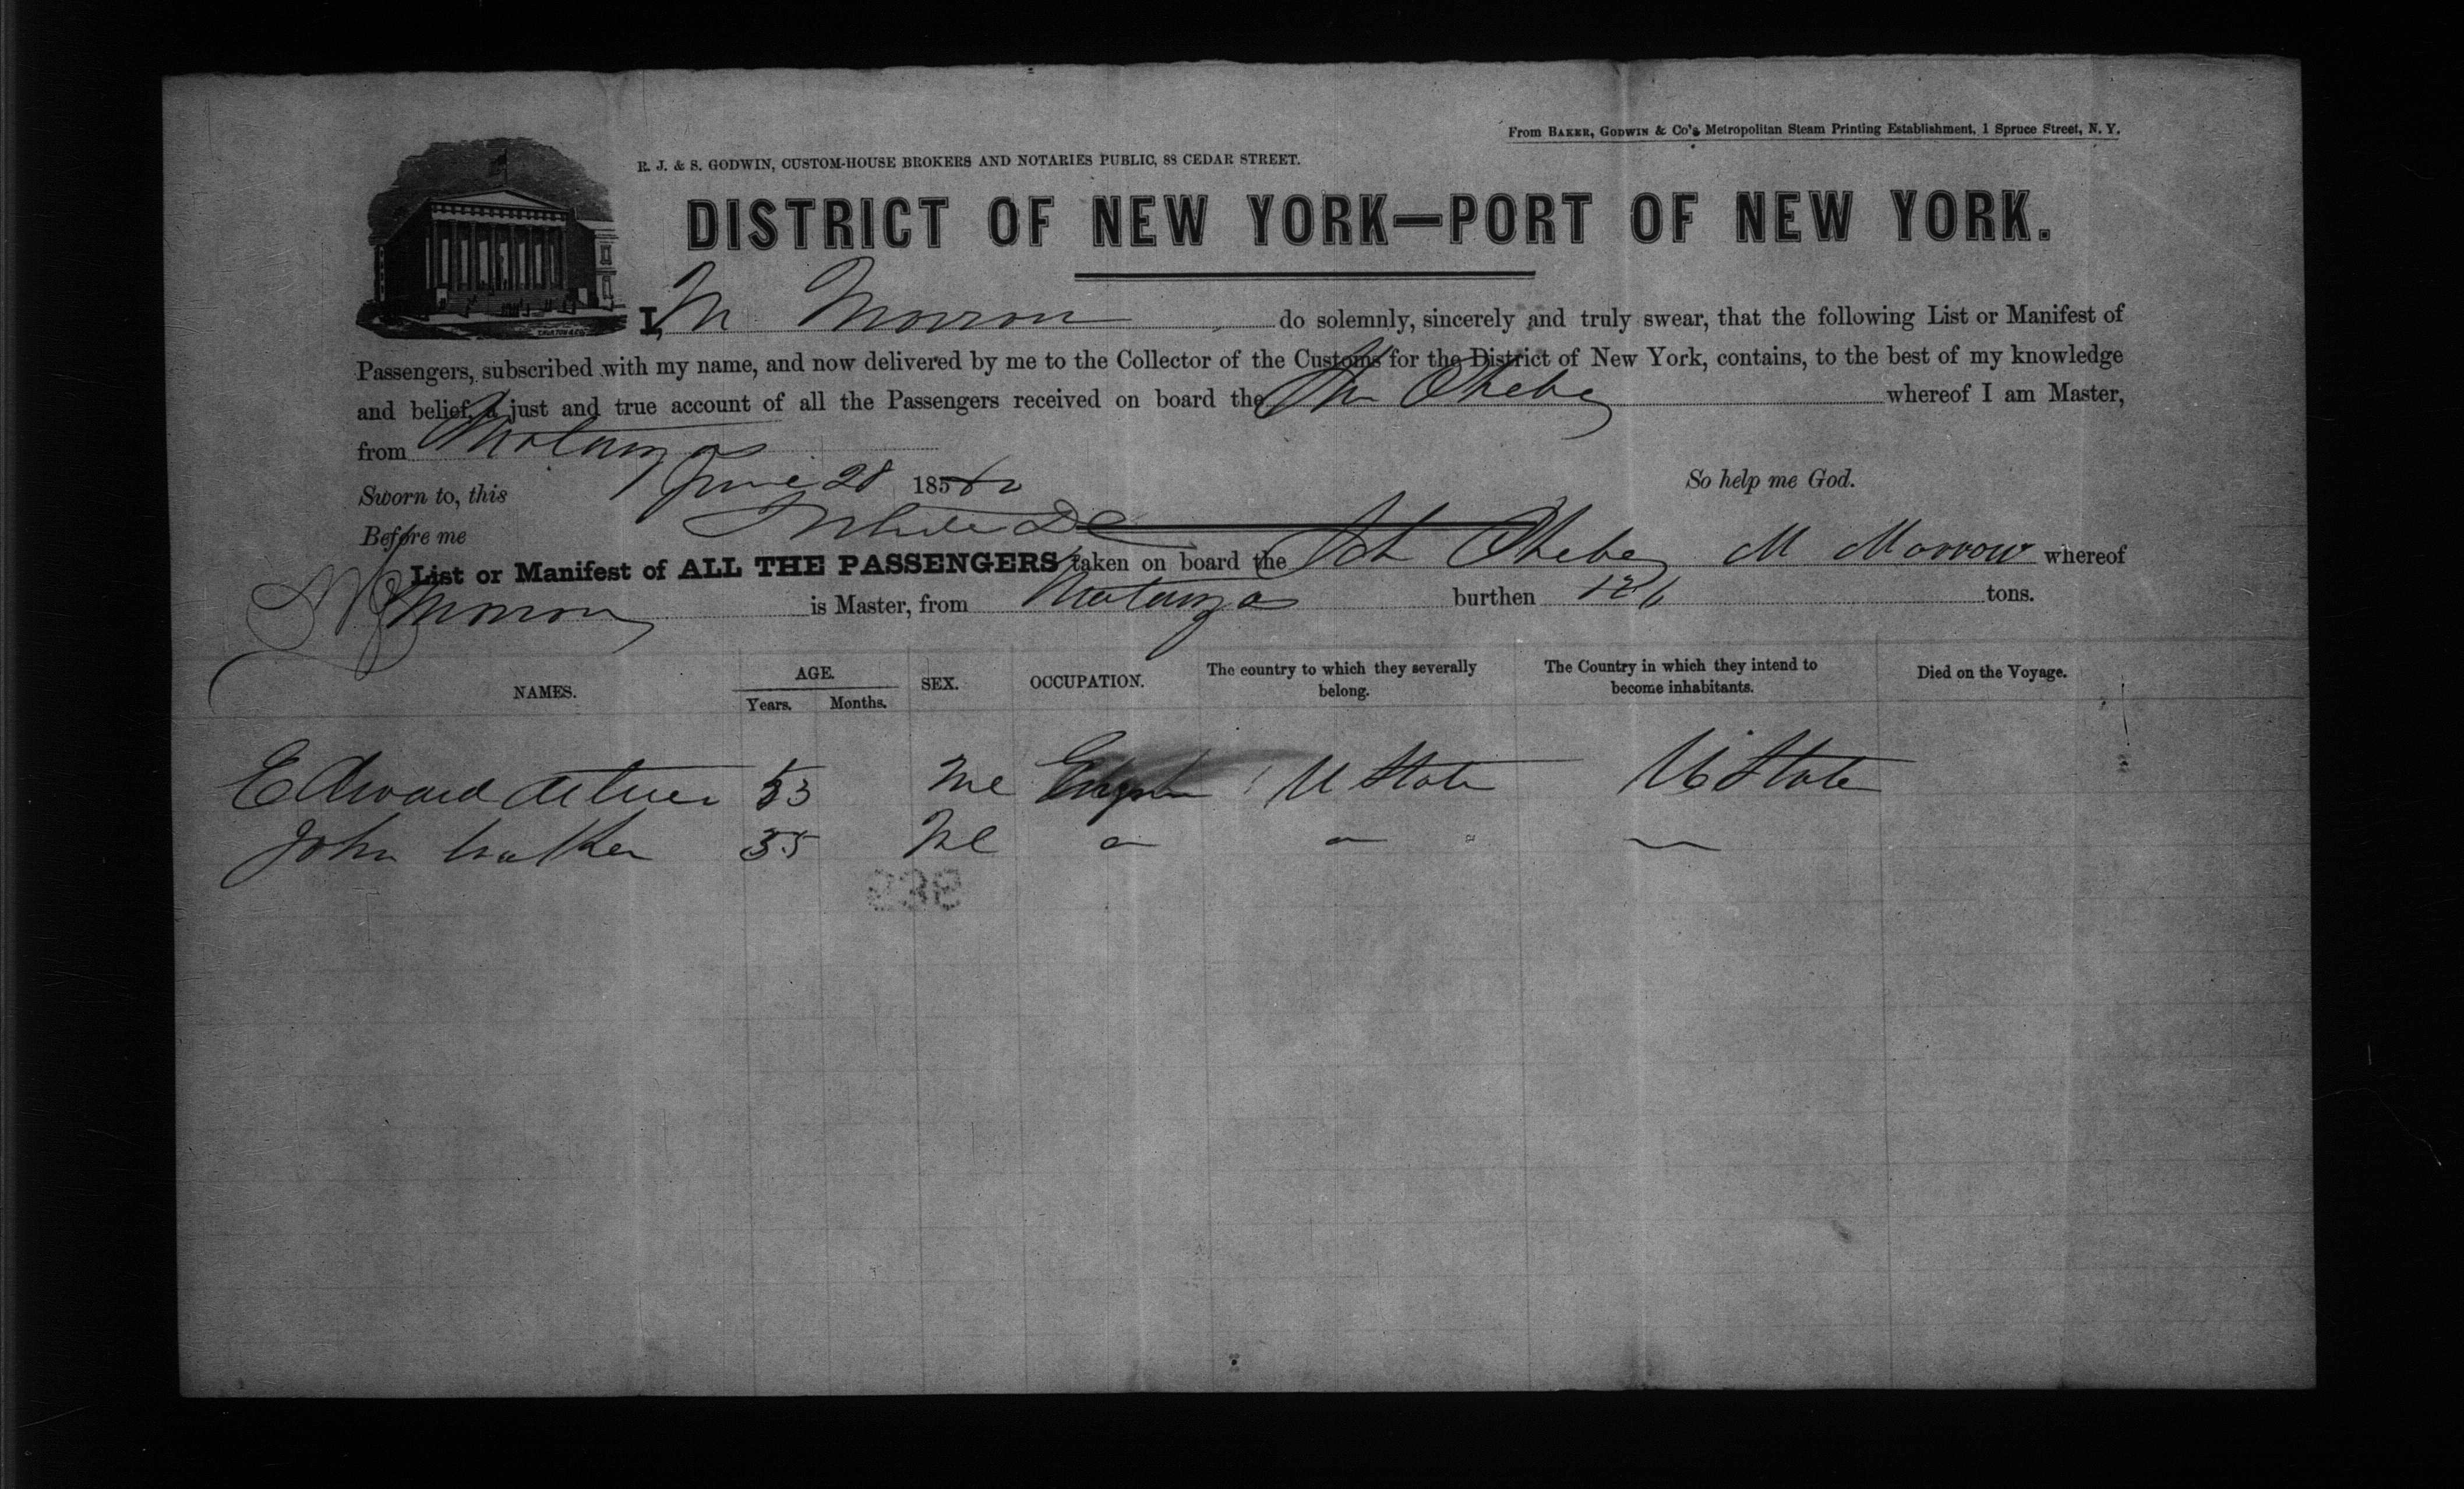 From BAKER, GODWIN & Co's Metropolitan Steam Printing Establishment, 1 Spruce Street, N. Y.
R. J. & S. GODWIN, CUSTOM-HOUSE BROKERS AND NOTARIES PUBLIC, 88 CEDAR STREET.
DISTRICT OF NEW YORK—PORT OF NEW YORK.
I, M Morrow do solemnly, sincerely and truly swear, that the following List or Manifest of
Passengers, subscribed with my name, and now delivered by me to the Collector of the Customs for the District of New York, contains, to the best of my knowledge
and belief, a just and true account of all the Passengers received on board the Phebe whereof I am Master,
from Matanzas
Sworn to, this June 28 185 So help me God.
Before me
List or Manifest of ALL THE PASSENGERS taken on board the Sch Phebe M Morrow whereof
M Morrow is Master, from Matanzas burthen 126 tons.
NAMES. AGE. SEX. OCCUPATION. The country to which they severally belong. The Country in which they intend to become inhabitants. Died on the Voyage.
Years. Months.
Edward 53 Me U State U State
John Walker 35 Me " " " —